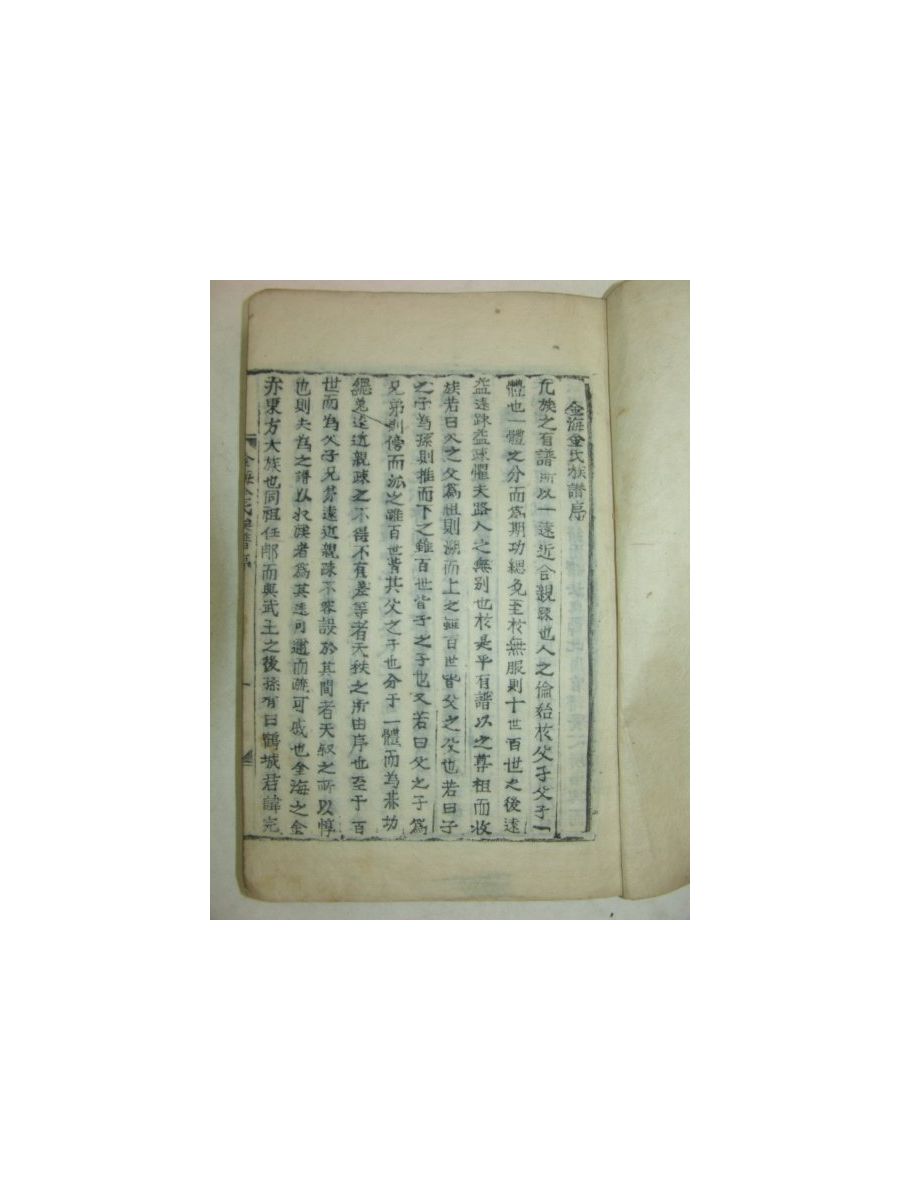 金海金氏族譜序
凢族之有譜所以一遠近合親踈也人之倫始於父子父子一
體也一體之分而爲期功緦免至於無服則十世百世之後遠
益遠踈益踈懼夫路人之無別也於是乎有譜以之尊祖而收
族若曰父之父爲祖則溯而上之雖百世皆父之父也若曰子
之子爲孫則推而下之雖百世皆子之子也又若曰父之子爲
兄弟則傍而派之雖百世皆其父之子也分于一體而為朞功
緦免遠近親踈之不得不有差等者天秩之所由序也至于百
世而為父子兄弟遠近親踈不容設於其間者天叙之所以惇
也則夫為之譜以收族者爲其遠可邇而踈可戚也金海之金
亦東方大族也同祖任那而興武王之後孫有曰鶴城君諱完
金海金氏族譜序